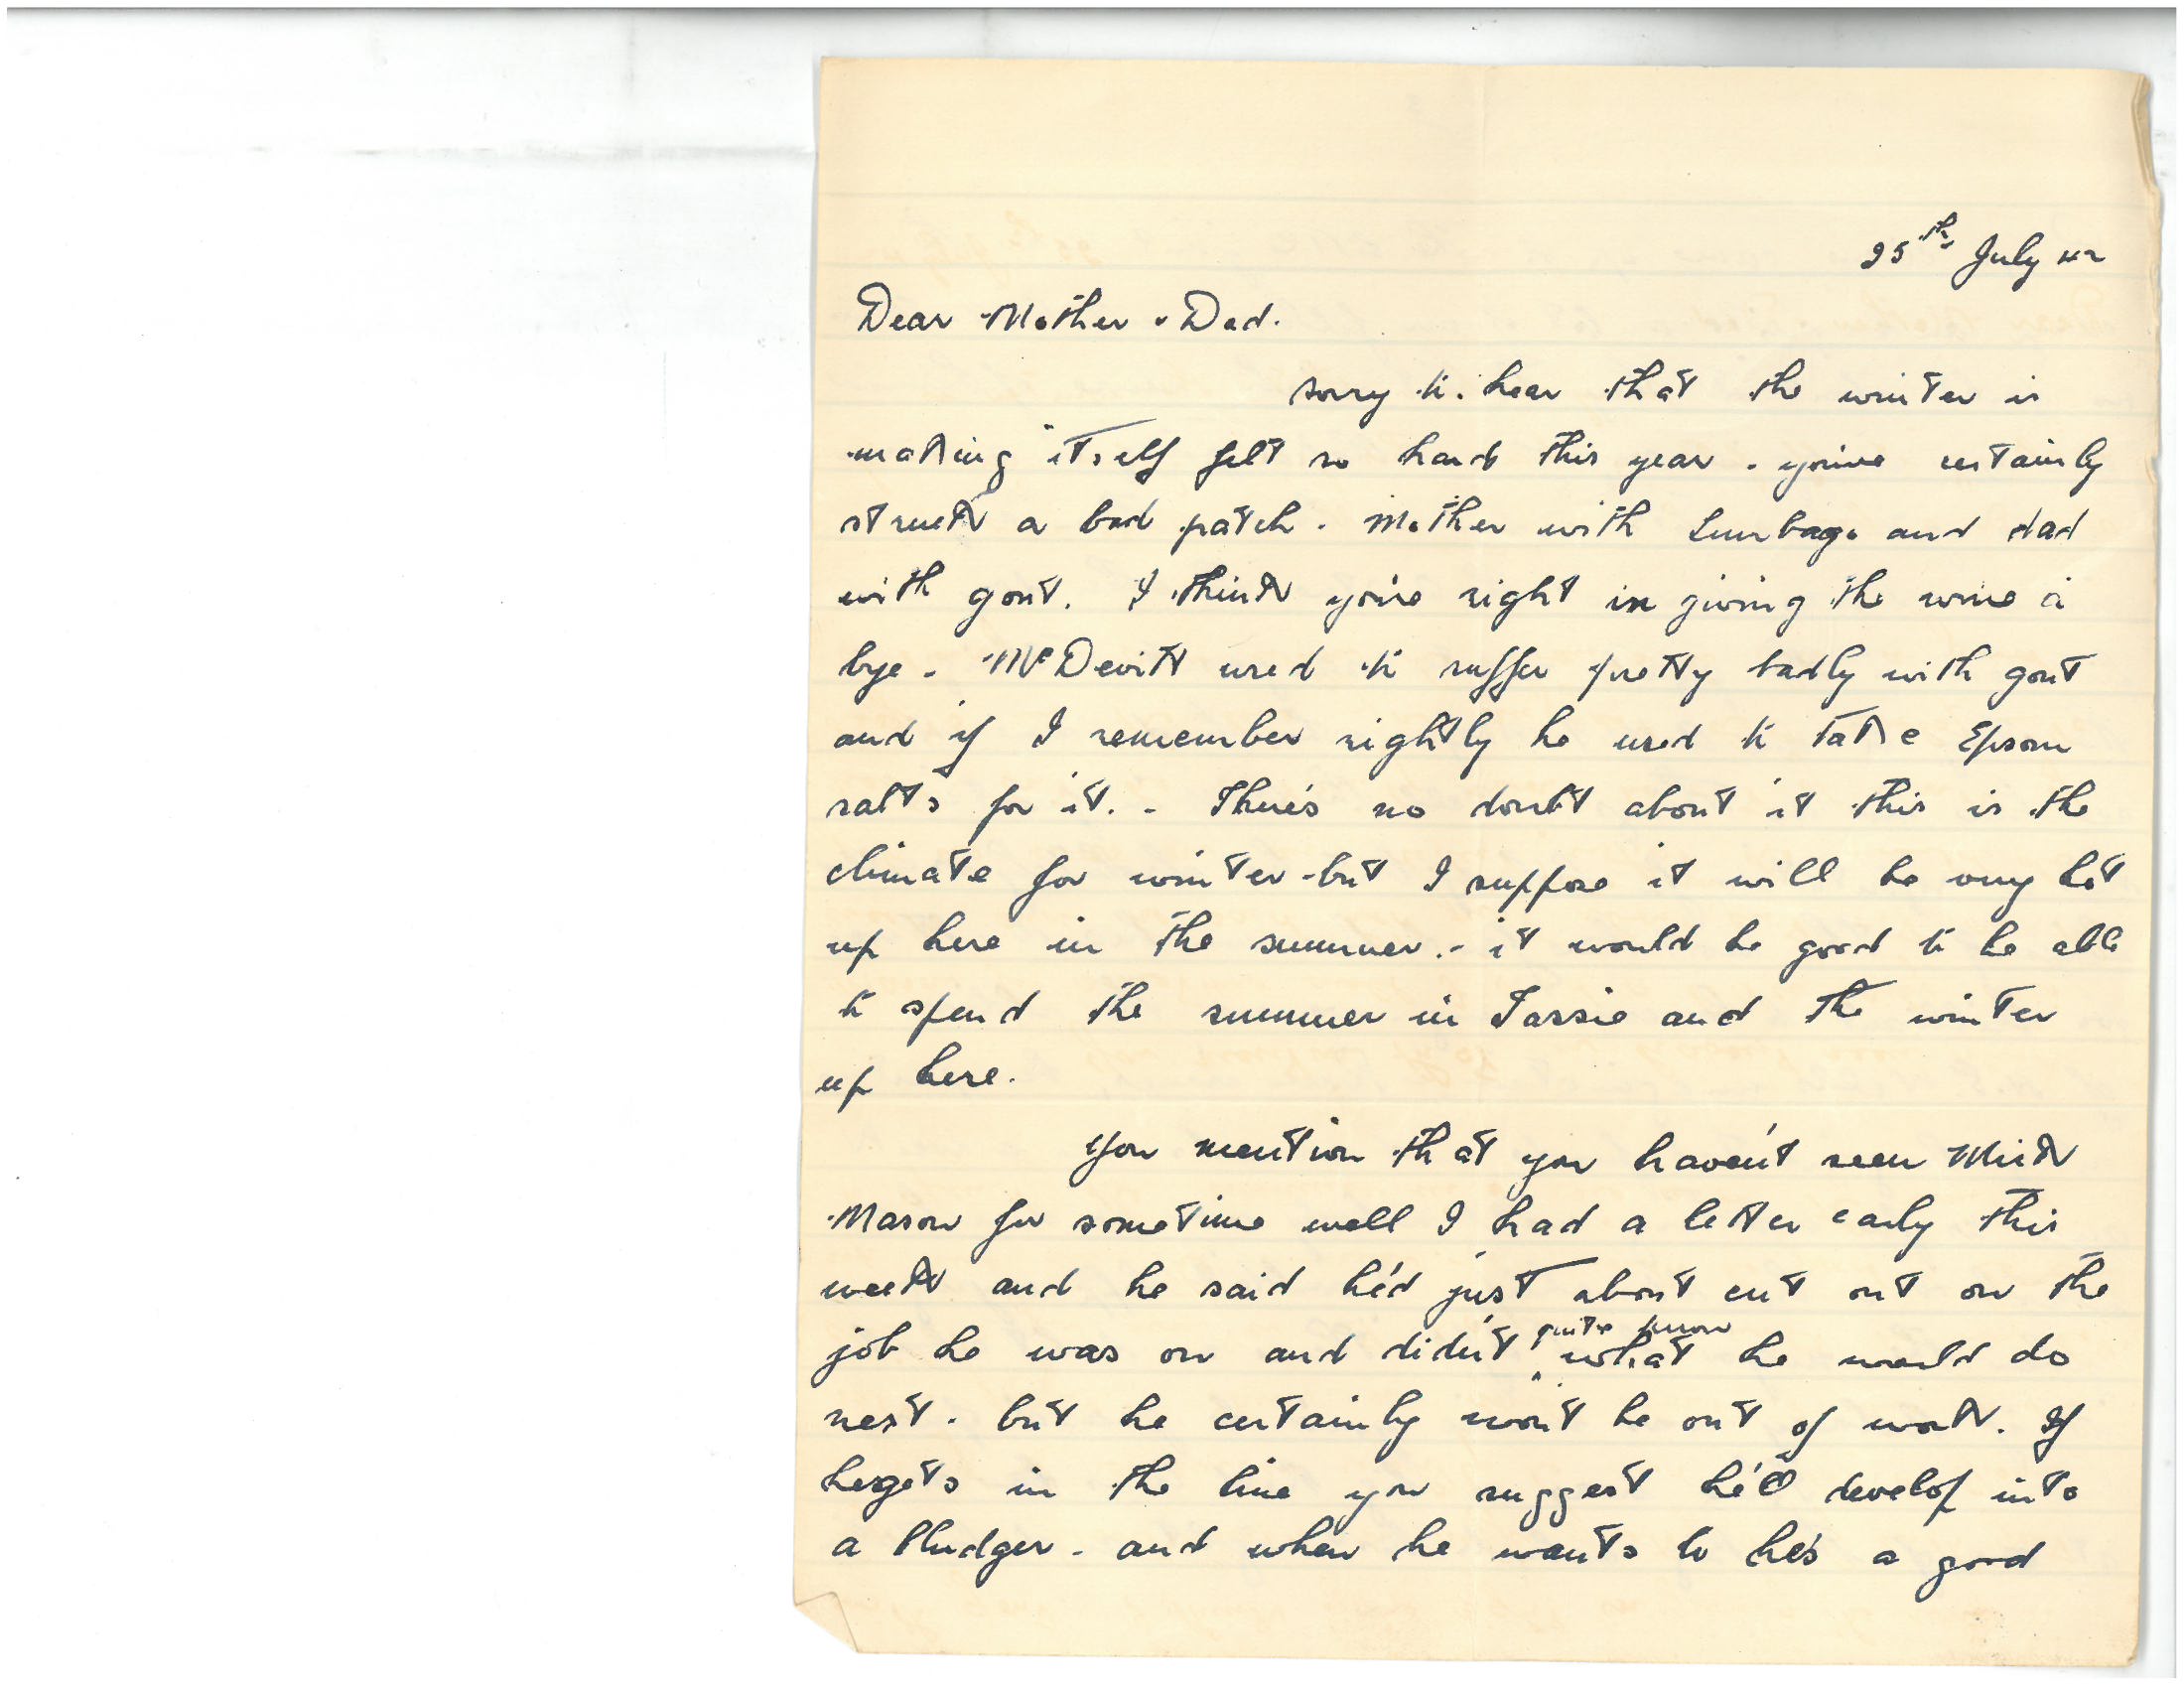 25th July 42
Dear Mother & Dad.
sorry to hear that the winter is
making itself felt so hard this year - you've certainly
struck a bad patch - Mother with Lumbago and dad
with gout. I think you're right in giving the wine a
bye - McDevitt used to suffer pretty badly with gout
and if I remember rightly he used to take Epsom
salts for it. - There's no doubt about it this is the
climate for winter - but I suppose it will be very hot
up here in the summer. - it would be good to be able
to spend the summer in Tassie and the winter
up here.
You mention that you haven't seen Mick
Mason for sometime well I had a letter early this
week and he said he'd just about cut out on the
job he was on and didn't quite know what he would do
next - but he certainly won't be out of work. If
he gets in the line you suggest he'll develop into
a bludger - and when he wants to he's a good